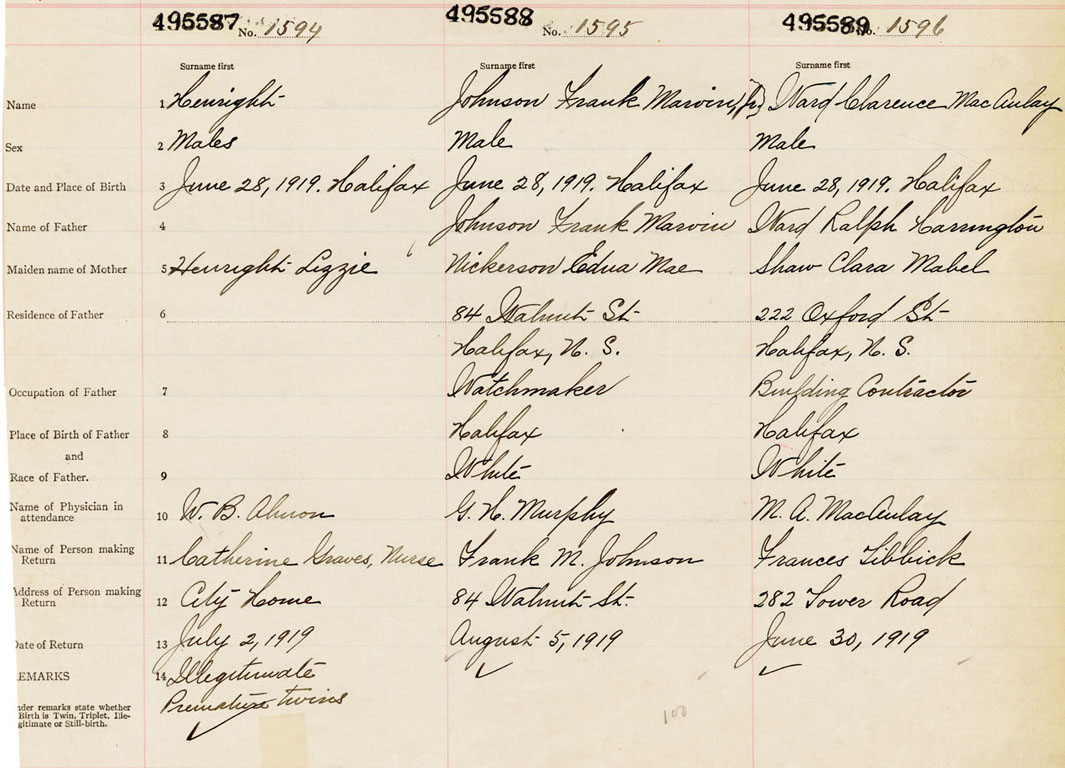 495587 No. 1594 495588 No. 1595 495589 No. 1596
Surname first Surname first Surname first
Name 1 Henright Johnson Frank Marvin, (Jr) Ward Clarence MacAulay
Sex 2 Males Male Male
Date and Place of Birth 3 June 28, 1919. Halifax June 28, 1919. Halifax June 28, 1919. Halifax
Name of Father 4 Johnson Frank Marvin Ward Ralph Harrington
Maiden name of Mother 5 Henright Lizzie Nickerson Edna Mae Shaw Clara Mabel
Residence of Father 6 84 Walnut St 222 Oxford St
Halifax, N. S. Halifax, N. S.
Occupation of Father 7 Watchmaker Building Contractor
Place of Birth of Father 8 Halifax Halifax
and
Race of Father. 9 White White
Name of Physician in attendance 10 W. B. Almon G. H. Murphy M. A. MacAulay
Name of Person making Return 11 Catherine Graves, Nurse Frank M. Johnson Frances Tibbick
Address of Person making Return 12 City Home 84 Walnut St. 282 Tower Road
Date of Return 13 July 2, 1919 August 5, 1919 June 30, 1919
EMARKS 14 Illegitimate
Premature twins
nder remarks state whether
Birth is Twin, Triplet, Ille-
gitimate or Still-birth.
100